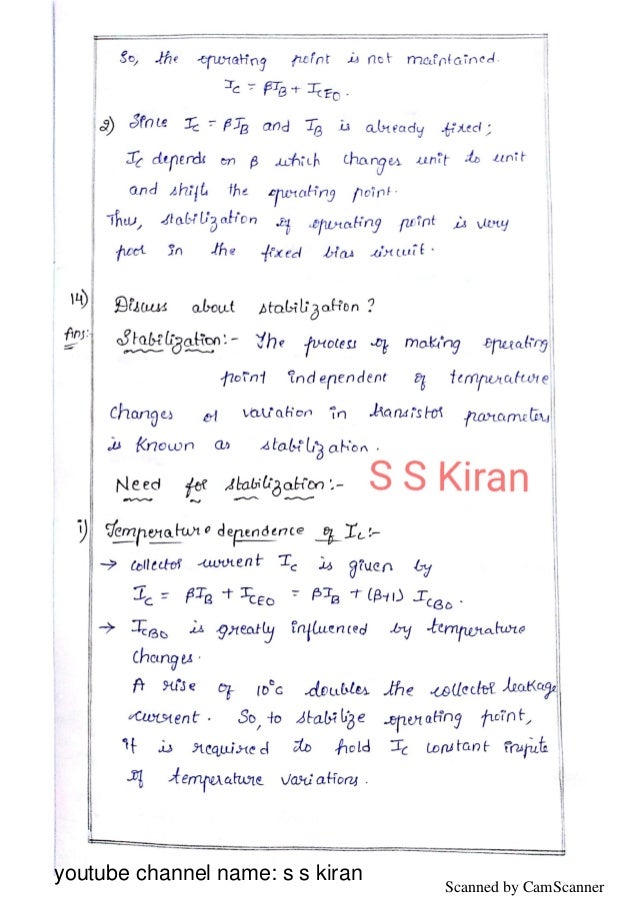 So, the operating point is not maintained.
IC = βIB + ICEO.
2) Since IC = βIB and IB is already fixed;
IC depends on β which changes unit to unit
and shifts the operating point.
Thus, stabilization of operating point is very
poor in the fixed bias circuit.
14) Discuss about stabilization?
Ans:- Stabilization:- The process of making operating
point independent of temperature
changes or variation in transistor parameters
is known as stabilization.
Need for stabilization:-
S S Kiran
i) Temperature dependence of IC:-
→ collector current IC is given by
IC = βIB + ICEO = βIB + (β+1) ICBO.
→ ICBO is greatly influenced by temperature
changes.
A rise of 10°C doubles the collector leakage
current. So, to stabilize operating point,
it is required to hold IC constant inspite
of temperature variations.
youtube channel name: s s kiran
Scanned by CamScanner